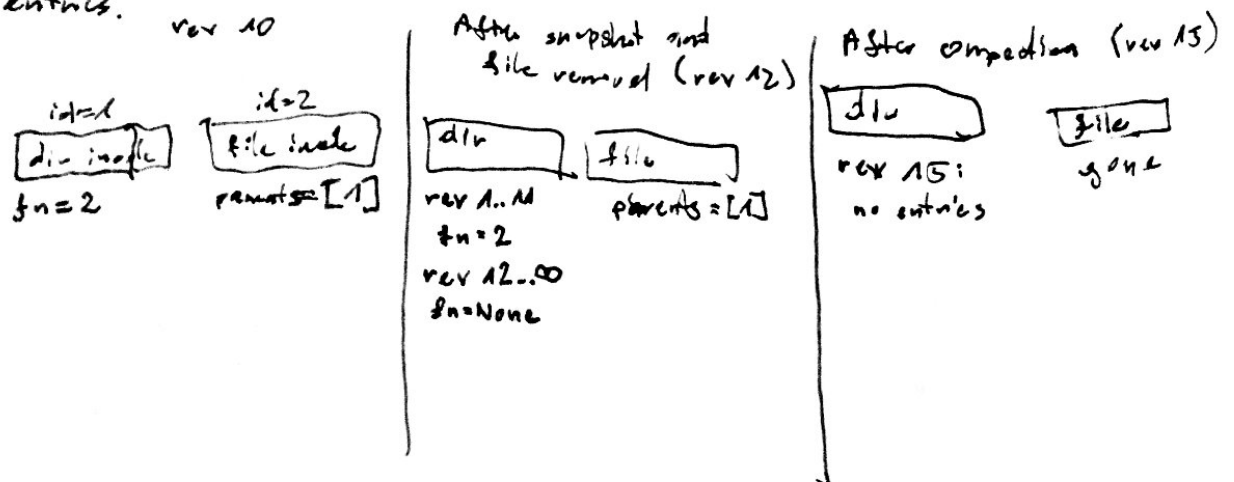 entries.
rev 10
id=1
id=2
dir inode
file inode
fn=2
parents=[1]
After snapshot and
file removal (rev 12)
dir
file
rev 1..11
fn=2
rev 12..∞
fn=None
parents=[1]
After compaction (rev 15)
dir
file
rev 15:
no entries
gone